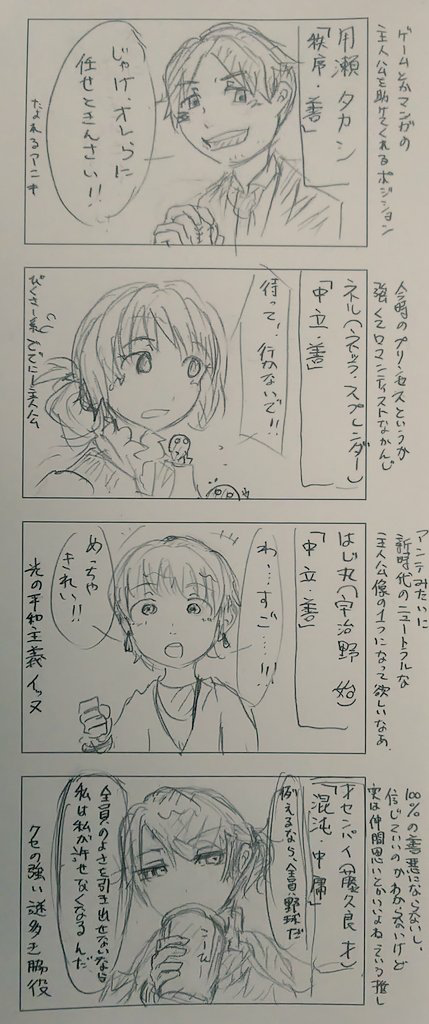 ゲームとかマンガの
主人公を助けてくれるポジション
「秩序・善」
じゃけ、オレらに
任せときんさい!!
たよれるアニキ
今時のプリンセスというか
強くてロマンティストなかんじ
「中立・善」
待って!行かないで!!
ぴくさー系ででにー主人公
アンテみたいに
新時代のニュートラルな
主人公像の1つになって欲しいなあ
はじ丸(宇治野 始)
「中立・善」
わ…すご…!!
めっちゃ
きれい!!
光の平和主義イッヌ
100%の善悪にならないし、
信じていいのかわからないけど
実は仲間思いとかいいよねっていう推し
「混沌・中庸」
例えるなら、全員野球だ
全員のよさを引き出せないなら
私は私が許せなくなるんだ
こーひー
クセの強い謎多き脇役